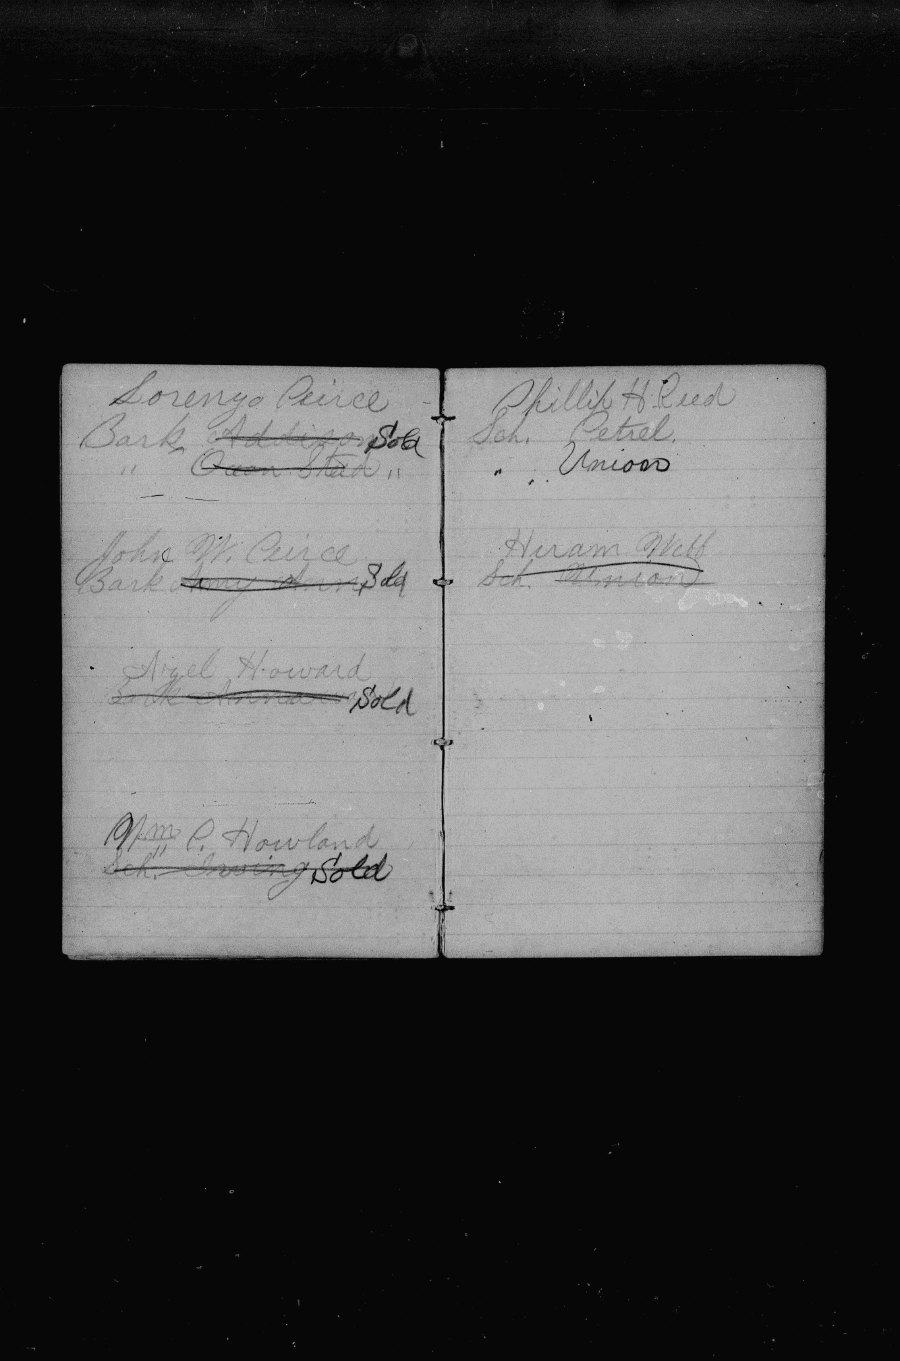 Lorenzo Peirce
Bark Addison Sold
" Steed "
John W. Peirce
Bark Amy Ann Sold
Howard
Sold
Wm P. Howland
Sch. Irving Sold
Phillip H. Reed
Sch. Petrel.
" Union
Hiram Webb
Sch. Union